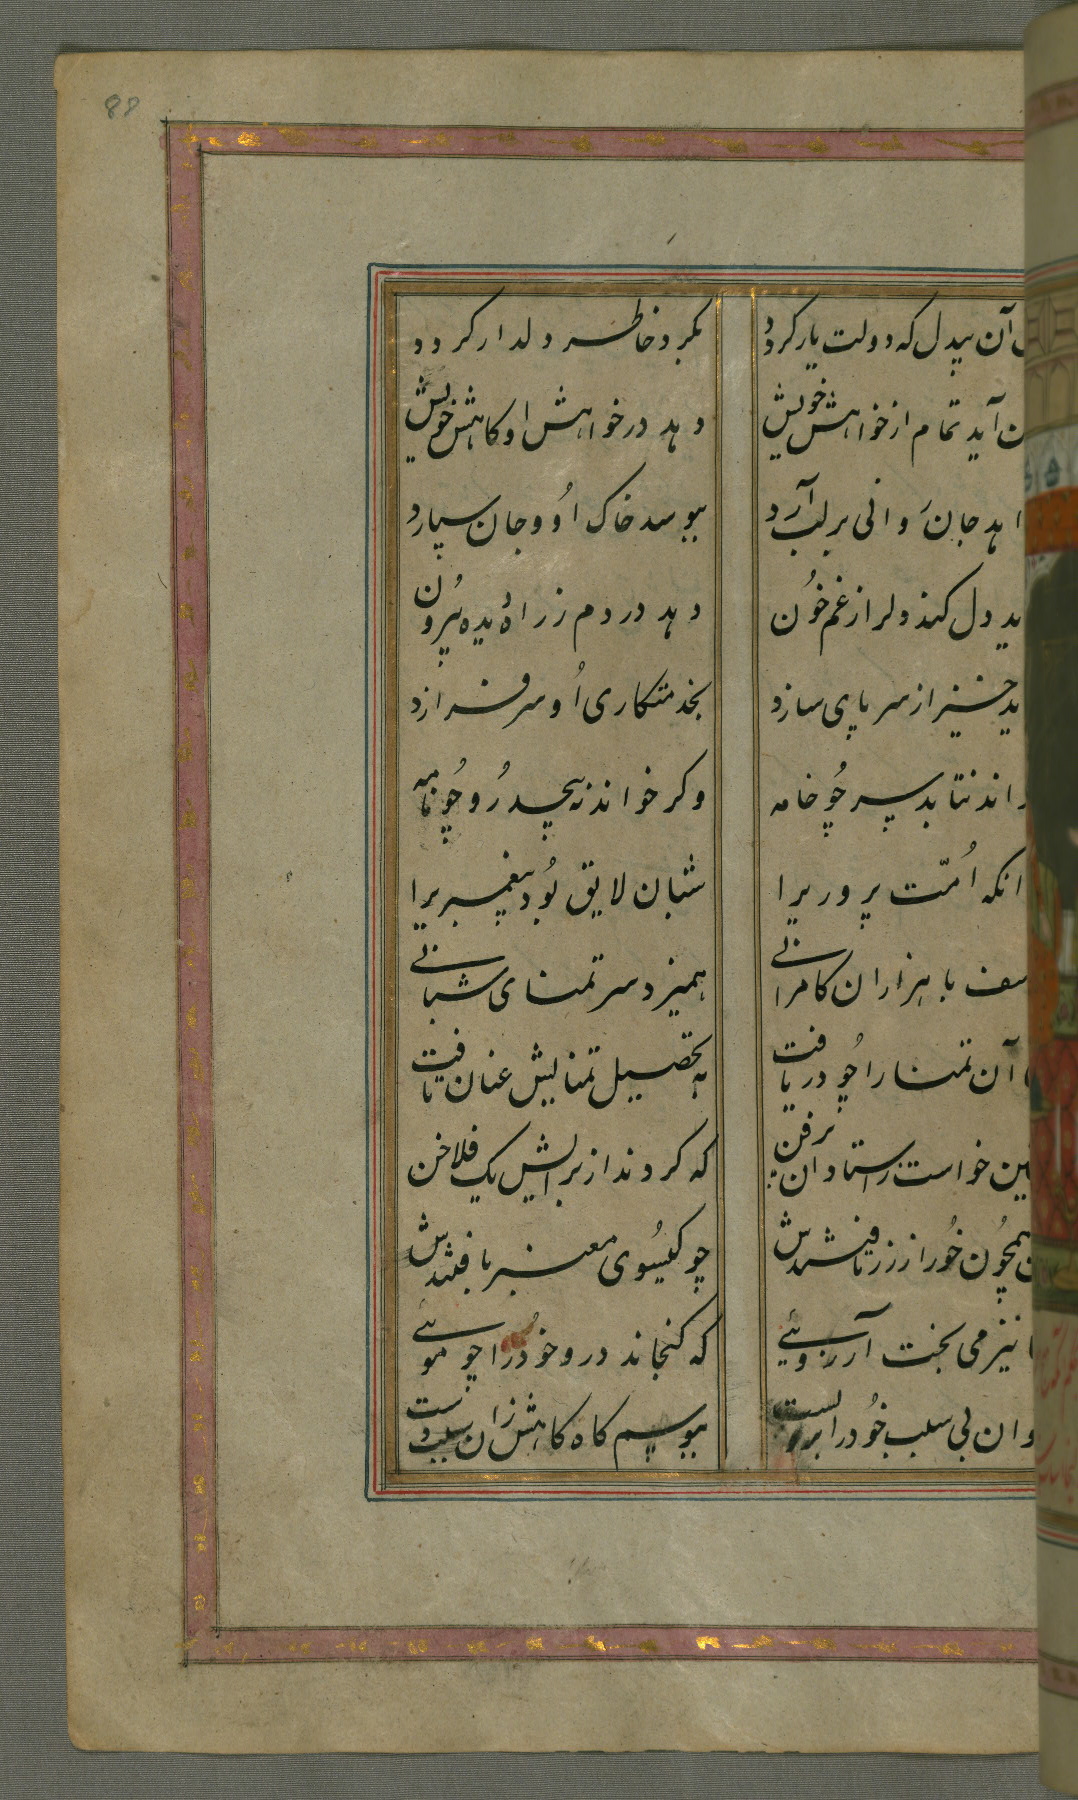 88
آن بیدل که دولت یار کردد
بکرد خاطر دلدار کردد
آید تمام از خواهش خویش
دهد در خواهش او کاهش خویش
جان وانی بر لب آرد
ببوسد خاک او و جان سپارد
دل کند دلرا ز غم خون
دهد در دم ز راه دیده بیرون
خیز از سر پای سازد
بخدمتکاری او سر فرازد
راند نتابد سر چو خامه
وکر خواند نه پیچد رو چو نامه
انکه امّت پروریرا
شبان لایق بود پیغمبریرا
با هزاران کامرانی
همیزد سر تمنای شبانی
آن تمنا را چو دریافت
به تحصیل تمنایش عنان تافت
خواست ز استادان پرفن
که کردند از برایش یک فلاخن
همچون خور از زر تافتندش
چو کیسوی معنبر بافتندش
نیز می بخت آرزویی
که کنجاند درو خود را چو مویی
وان بی سلب خود را بر او بست
ببوسم کاه کاهش زان سلب دست